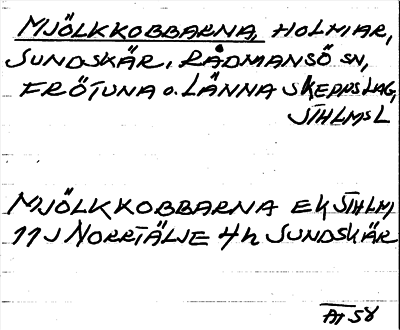 MJÖLKKOBBARNA, HOLMAR,
SUNDSKÄR, RÅDMANSÖ SN,
FRÖTUNA o. LÄNNA SKEPPSLAG,
STHLMSL
MJÖLKKOBBARNA EK STHLM
11J NORRTÄLJE 4h SUNDSKÄR
AT 58